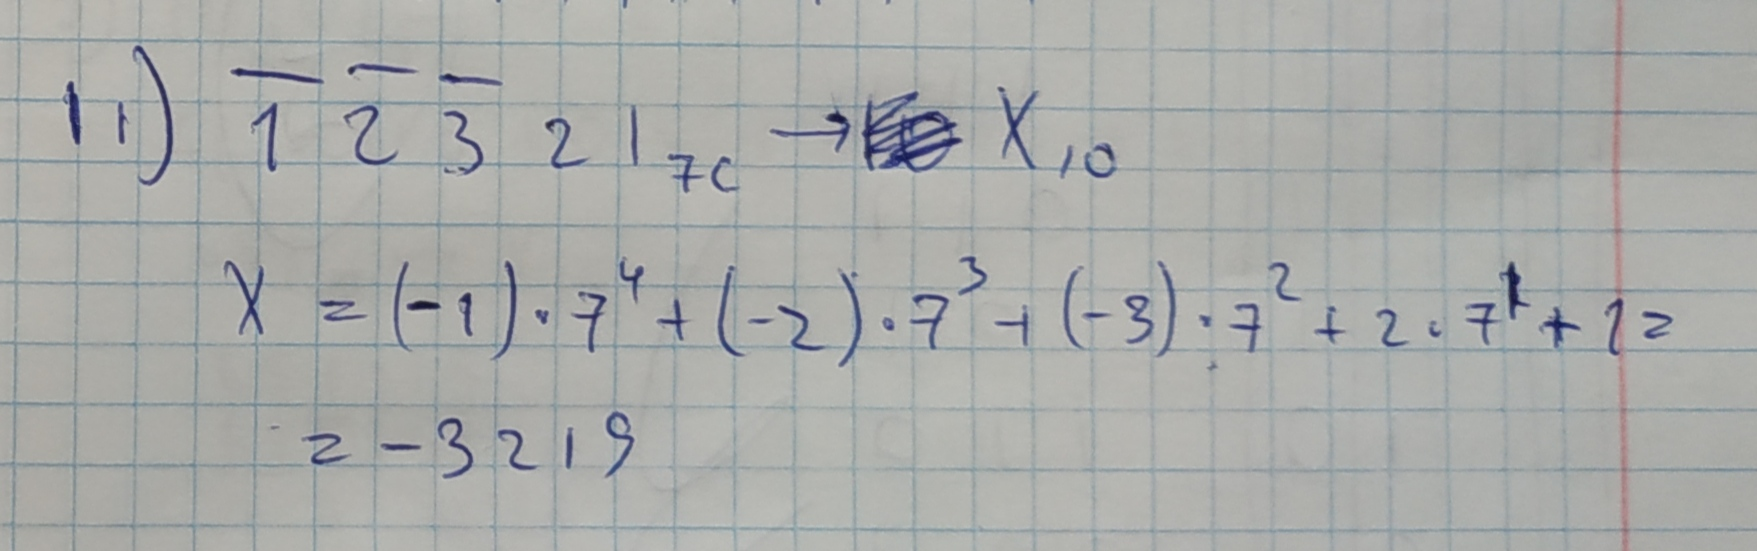 11) 1̅ 2̅ 3̅ 2 1₇c → X₁₀
X = (-1)·7⁴ + (-2)·7³ + (-3)·7² + 2·7¹ + 1 =
= -3219